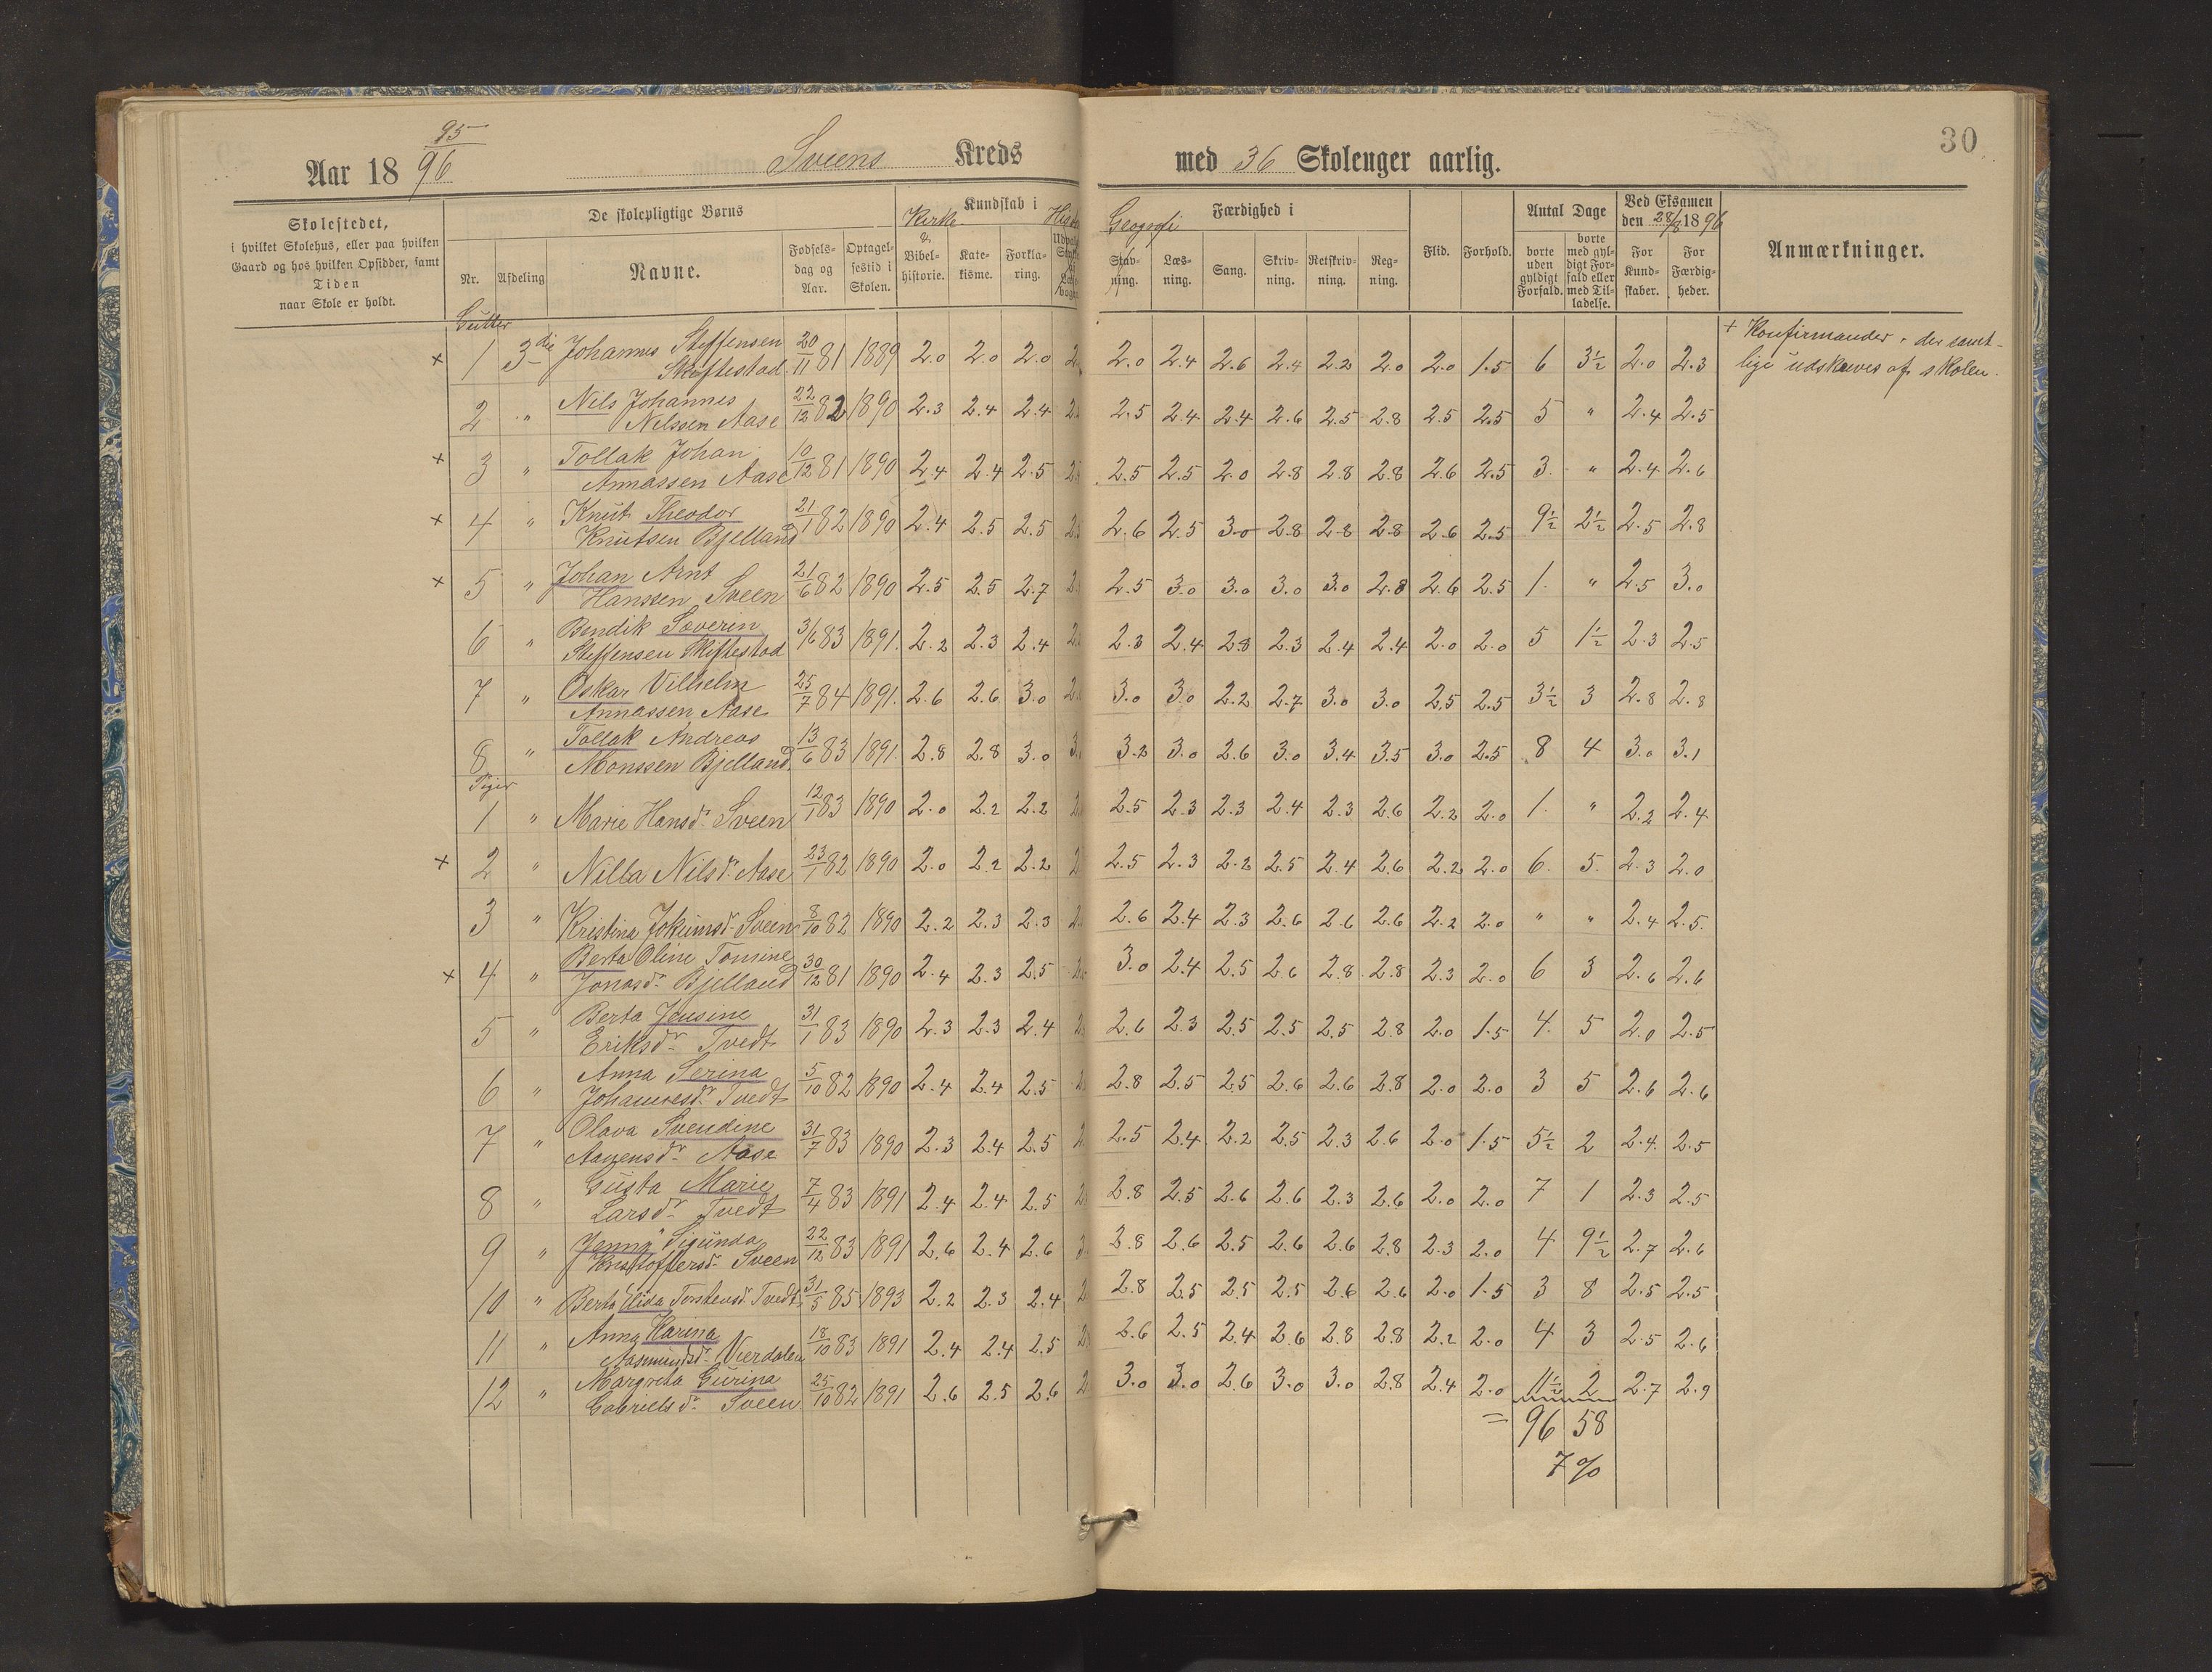 95
Aar 18 96
Sveens Kreds
med 36 Skolenger aarlig.
30
Skolestedet,
i hvilket Skolehus, eller paa hvilken
Gaard og hos hvilken Opsidder, samt
Tiden
naar Skole er holdt.
De skolepligtige Børns
Nr. Afdeling Navne. Fødsels-dag og Aar. Optagel-sestid i Skolen.
Kundskab i
Kirke & Bibel-historie. Kate-kisme. Forkla-ring.
Geografi
Færdighed i
Stav-ning. Læs-ning. Sang. Skriv-ning. Retskriv-ning. Reg-ning.
Flid. Forhold.
Antal Dage
borte uden gyldigt Forfald. borte med gyl-digt For-fald eller med Til-ladelse.
Ved Eksamen
den 28/8 1896
For Kund-skaber. For Færdig-heder.
Anmærkninger.
Gutter
+ 1 3die Johannes Steffensen Skiftestad 20/11 81 1889 2.0 2.0 2.0 2.0 2.4 2.6 2.4 2.2 2.0 2.0 1.5 6 3½ 2.0 2.3
+ Konfirmander, der samt-
lige udskrives af skolen.
2 " Nils Johannes Nilssen Aase 22/12 82 1890 2.3 2.4 2.4 2.5 2.4 2.4 2.6 2.5 2.8 2.5 2.5 5 " 2.4 2.5
+ 3 " Tollak Johan Annassen Aase 10/12 81 1890 2.4 2.4 2.5 2.5 2.5 2.0 2.8 2.8 2.8 2.6 2.5 3 " 2.4 2.6
+ 4 " Knut Theodor Knutsen Bjelland 21/1 82 1890 2.4 2.5 2.5 2.6 2.5 3.0 2.8 2.8 2.8 2.6 2.5 9½ 2½ 2.5 2.8
+ 5 " Johan Arnt Hanssen Sveen 21/6 82 1890 2.5 2.5 2.7 2.5 3.0 3.0 3.0 3.0 2.8 2.6 2.5 1 " 2.5 3.0
6 " Bendik Severin Steffensen Skiftestad 3/6 83 1891 2.2 2.3 2.4 2.3 2.4 2.8 2.3 2.4 2.4 2.0 2.0 5 1½ 2.3 2.5
7 " Oskar Vilhelm Annassen Aase 25/7 84 1891 2.6 2.6 3.0 3.0 3.0 2.2 2.7 3.0 3.0 2.5 2.5 3½ 3 2.8 2.8
8 " Tollak Andreas Monssen Bjelland 13/6 83 1891 2.8 2.8 3.0 3.2 3.0 2.6 3.0 3.4 3.5 3.0 2.5 8 4 3.0 3.1
Piger
1 " Marie Hansdr. Sveen 12/1 83 1890 2.0 2.2 2.2 2.5 2.3 2.3 2.4 2.3 2.6 2.2 2.0 1 " 2.2 2.4
+ 2 " Nilla Nilsdr. Aase 23/1 82 1890 2.0 2.2 2.2 2.5 2.3 2.2 2.5 2.4 2.6 2.2 2.0 6 5 2.3 2.0
3 " Kristina Jokumsdr. Sveen 8/10 82 1890 2.2 2.3 2.3 2.6 2.4 2.3 2.6 2.6 2.6 2.2 2.0 " " 2.4 2.5
+ 4 " Berta Oline Tomine Jonasdr. Bjelland 30/12 81 1890 2.4 2.3 2.5 3.0 2.4 2.5 2.6 2.8 2.8 2.3 2.0 6 3 2.6 2.6
5 " Berta Jensine Eriksdr. Tvedt 31/1 83 1890 2.3 2.3 2.4 2.6 2.3 2.5 2.5 2.5 2.8 2.0 1.5 4 5 2.0 2.5
6 " Anna Serina Johannesdr. Tvedt 5/10 82 1890 2.4 2.4 2.5 2.8 2.5 2.5 2.6 2.6 2.8 2.0 2.0 3 5 2.6 2.6
7 " Olava Svendine Aanensdr. Aase 31/7 83 1890 2.3 2.4 2.5 2.5 2.4 2.2 2.5 2.3 2.6 2.0 1.5 5½ 2 2.4 2.5
8 " Gusta Marie Larsdr. Tvedt 7/4 83 1891 2.4 2.4 2.5 2.8 2.5 2.6 2.6 2.3 2.6 2.0 2.0 7 1 2.3 2.5
9 " Jenny Sigunda Kristoffersdr. Sveen 22/12 83 1891 2.6 2.4 2.6 2.8 2.6 2.5 2.6 2.6 2.8 2.3 2.0 4 9½ 2.7 2.6
10 " Berta Elida Torstensdr. Tvedt 31/5 85 1893 2.2 2.3 2.4 2.8 2.5 2.5 2.5 2.6 2.6 2.0 1.5 3 8 2.5 2.5
11 " Anna Karina Aasmundsdr. Vierdalen 18/10 83 1891 2.4 2.4 2.5 2.6 2.5 2.4 2.6 2.8 2.8 2.2 2.0 4 3 2.5 2.6
12 " Margreta Gurina Gabrielsdr. Sveen 25/10 82 1891 2.6 2.5 2.6 3.0 3.0 2.6 3.0 3.0 2.8 2.4 2.0 11½ 2 2.7 2.9
= 96 58
7 %